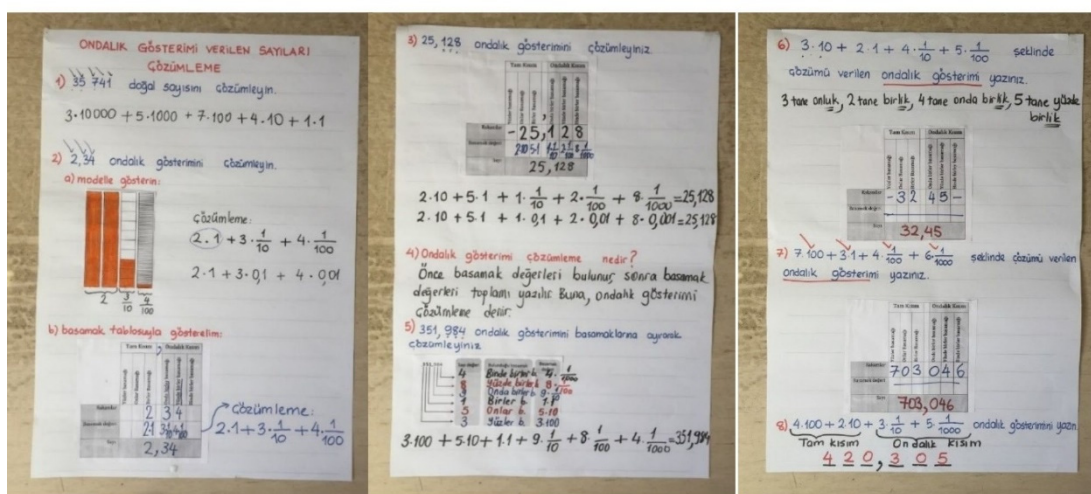 ONDALIK GÖSTERİMİ VERİLEN SAYILARI
ÇÖZÜMLEME
1) 35 741 doğal sayısını çözümleyin.
3·10000 + 5·1000 + 7·100 + 4·10 + 1·1
2) 2,34 ondalık gösterimini çözümleyin.
a) modelle gösterin:
çözümleme:
2·1 + 3·1/10 + 4·1/100
2·1 + 3·0,1 + 4·0,01
2 3/10 4/100
b) basamak tablosuyla gösterelim:
Tam Kısım , Ondalık Kısım
Rakamlar 2 3 4
Basamak değeri
Sayı 2,34
çözümleme:
2·1 + 3·1/10 + 4·1/100
3) 25,128 ondalık gösterimini çözümleyiniz.
Tam Kısım Ondalık Kısım
Rakamlar - 25,128
Basamak değeri
Sayı 25,128
2·10 + 5·1 + 1·1/10 + 2·1/100 + 8·1/1000 = 25,128
2·10 + 5·1 + 1·0,1 + 2·0,01 + 8·0,001 = 25,128
4) Ondalık gösterimi çözümleme nedir?
Önce basamak değerleri bulunur, sonra basamak
değerleri toplamı yazılır. Buna, ondalık gösterimi
çözümleme denir.
5) 351,984 ondalık gösterimini basamaklarına ayırarak
çözümleyiniz.
4 Binde birler b. 4·1/1000
8 Yüzde birler b. 8·1/100
9 Onda birler b. 9·1/10
1 Birler b. 1·1
5 Onlar b. 5·10
3 Yüzler b. 3·100
3·100 + 5·10 + 1·1 + 9·1/10 + 8·1/100 + 4·1/1000 = 351,984
6) 3·10 + 2·1 + 4·1/10 + 5·1/100 şeklinde
çözümü verilen ondalık gösterimi yazınız.
3 tane onluk, 2 tane birlik, 4 tane onda birlik, 5 tane yüzde
birlik
Tam Kısım Ondalık Kısım
Rakamlar - 32 45 -
Basamak değeri
Sayı 32,45
7) 7·100 + 3·1 + 4·1/100 + 6·1/1000 şeklinde çözümü verilen
ondalık gösterimi yazınız.
Tam Kısım Ondalık Kısım
Rakamlar 703 046
Basamak değeri
Sayı 703,046
8) 4·100 + 2·10 + 3·1/10 + 5·1/1000 ondalık gösterimini yazın.
Tam kısım Ondalık kısım
4 2 0 , 3 0 5